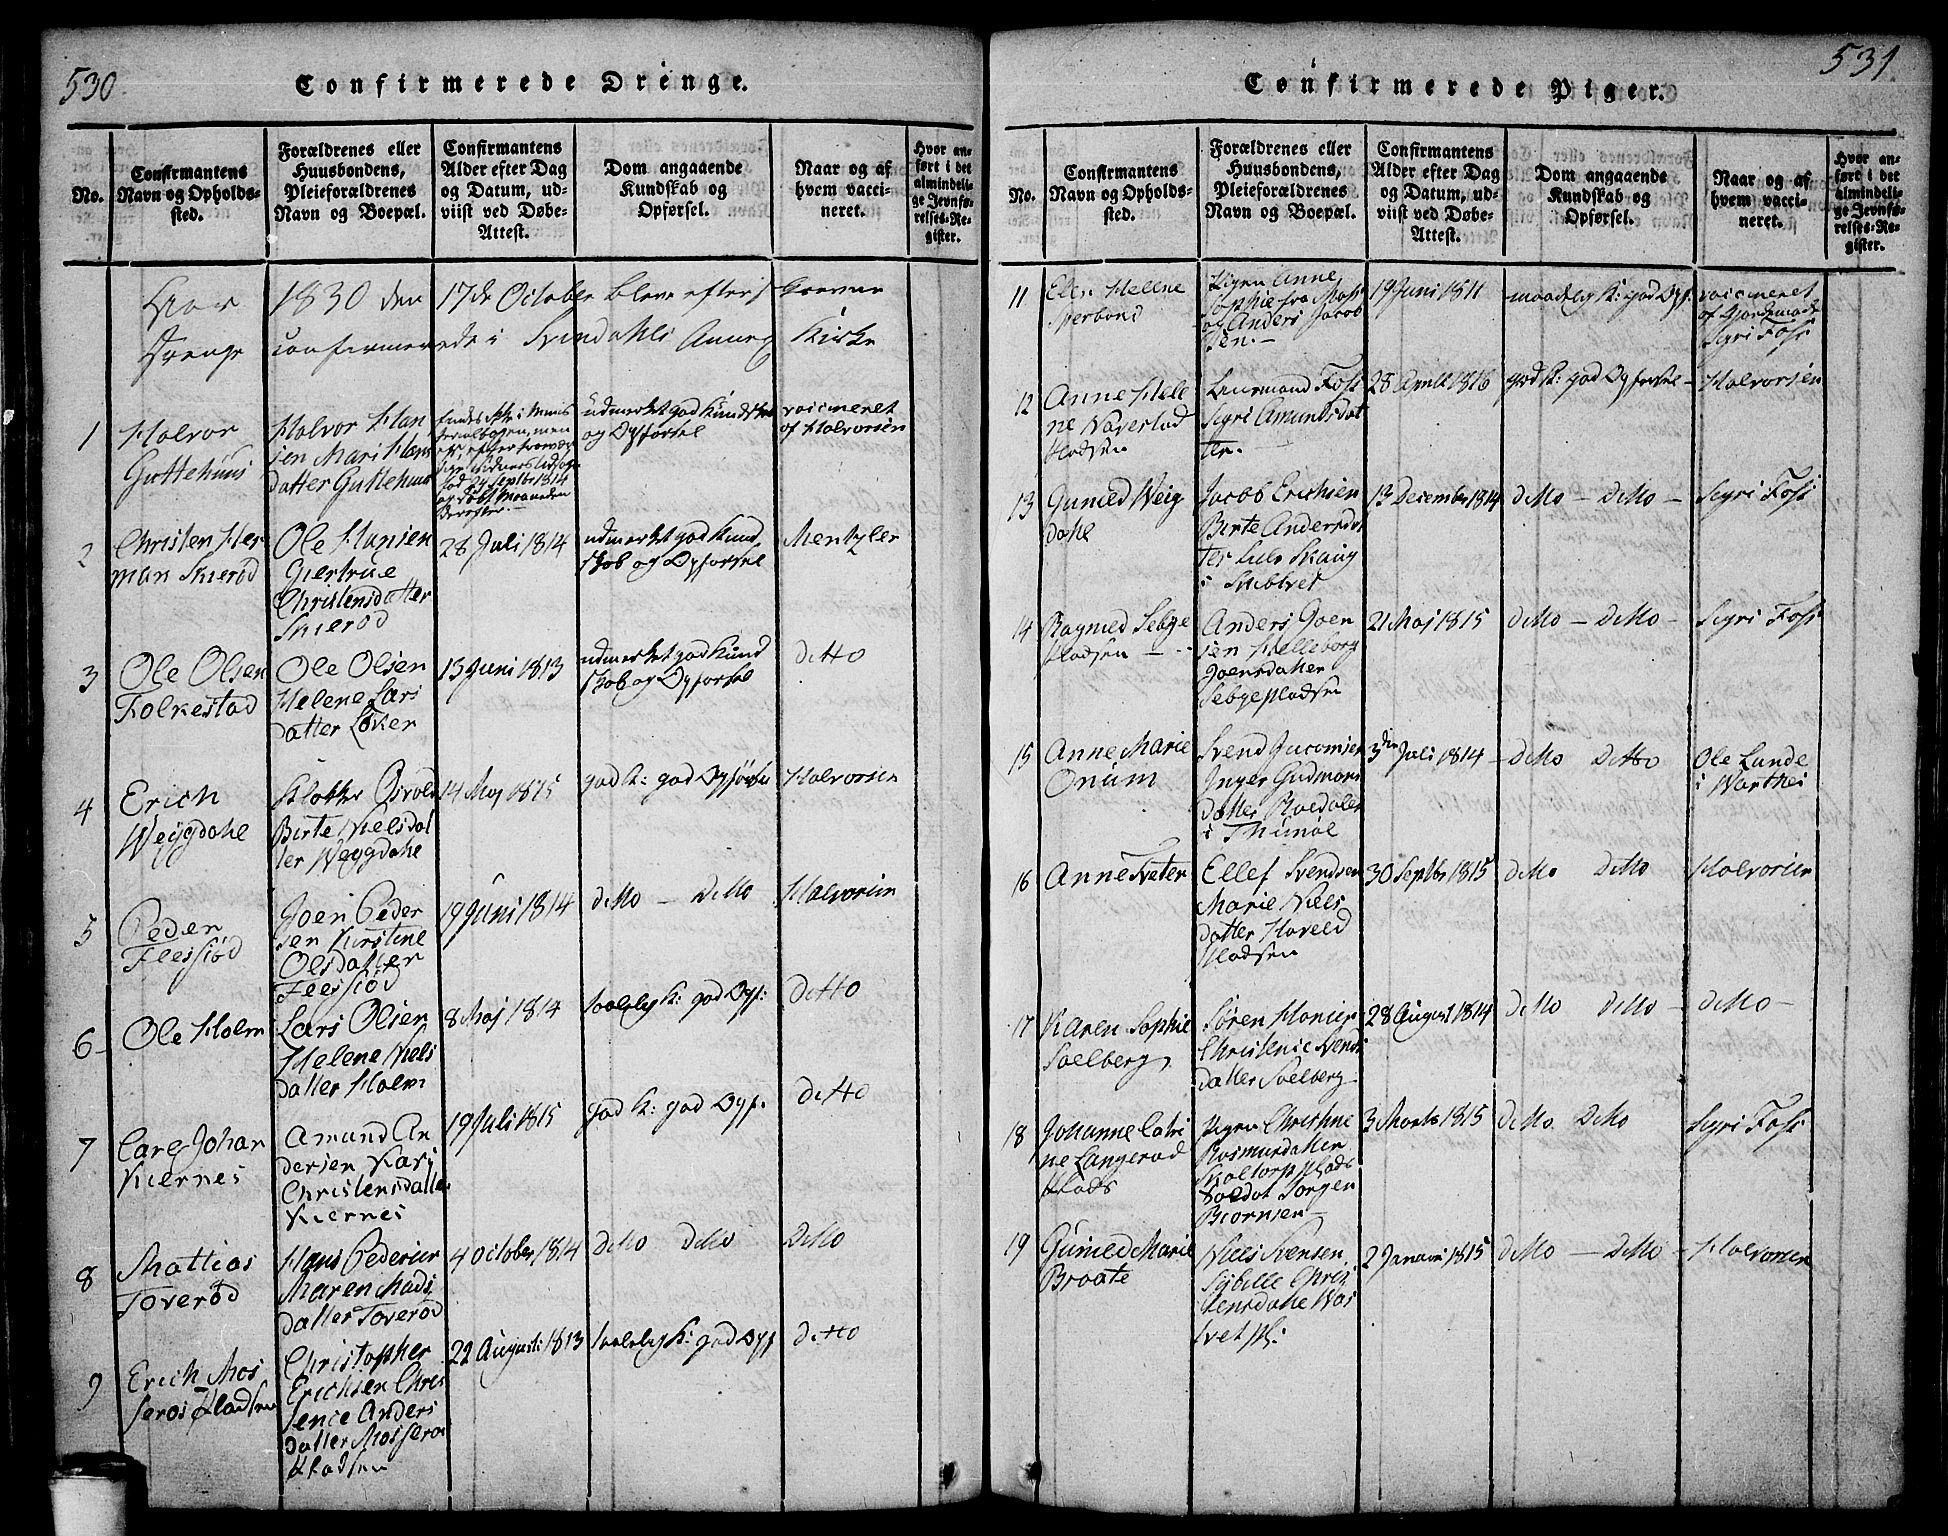 530
Confirmerede Drenge.
No.
Confirmantens
Navn og Opholds-
sted.
Forældrenes eller
Huusbondens,
Pleieforældrenes
Navn og Boepæl.
Confirmantens
Alder efter Dag
og Datum, ud-
viist ved Døbe-
Attest.
Dom angaaende
Kundskab og
Opførsel.
Naar og af
hvem vacci-
neret.
Hvor an-
ført i det
almindeli-
ge Jevnfø-
relses-Re-
gister.
Aar 1830 den 17de October bleve efterskrevne
Drenge confirmerede i Svindahls Annex Kirke
1
Halvor
Guttehuus
Halvor Han
sen Mari Hans
datter Guttehuus
24 Septbr 1814
udmerket god Kundskab
og Opførsel
vaccineret
af Halvorsen
2
Christen Her
man Skierød
Ole Hansen
Giertrue
Christensdatter
Skierød
28 Juli 1814
udmerket god Kund
skab og Opførsel
Mentzler
3
Ole Olsen
Folkestad
Ole Olsen
Helene Lars
datter Løker
13 Juni 1813
udmerket god Kund
skab og Opførsel
ditto
4
Erich
Weygdahl
Klokker
Birte Nielsdat
ter Weygdahl
14 Maj 1815
god K: god Opførsel
Halvorsen
5
Peder
Flessiød
Joen Peder
sen Kirstine
Olsdatter
Flessiød
19 Juni 1814
ditto — ditto
Halvorsen
6
Ole Holm
Lars Olsen
Helene Niels
datter Holm
8 Maj 1814
taalelig K: god Opf:
ditto
7
Carl Johan
Kiernes
Amund An
dersen Kari
Christensdatter
Kiernes
19 Juli 1815
god K: god Opf.
ditto
8
Mattias
Toverød
Hans Pedersen
Maren Mads
datter Toverød
4 October 1814
ditto ditto
ditto
9
Erich Mos
seros Pladsen
Christopher
Erichsen Chris
tence Anders
datter Mosseros
Pladsen
22 August: 1813
taalelig K: god Opf
ditto
531
Confirmerede Piger.
No.
Confirmantens
Navn og Opholds-
sted.
Forældrenes eller
Huusbondens,
Pleieforældrenes
Navn og Boepæl.
Confirmantens
Alder efter Dag
og Datum, ud-
viist ved Døbe-
Attest.
Dom angaaende
Kundskab og
Opførsel.
Naar og af
hvem vacci-
neret.
Hvor an-
ført i det
almindeli-
ge Jevnfø-
relses-Re-
gister.
11
Elen Helene
Sperbond
Pigen Anne
Sophie fra Moss
og Anders Jacob
sen. —
19 Juni 1811
maadelig K: god Opf.
vaccineret
af Gjordemoder
Segri Foss
12
Anne Hele
ne
Pladsen
Lensmand Foss
Segri Amundsdat
ter. —
28 April 1816
god K: god Opførsel —
Halvorsen
13
Gunild Weig
dahl
Jacob Erichsen
Birte Andersdat
ter
i
13 December 1814
ditto — ditto —
Segri Foss
14
Ragnild Sebge
Pladsen —
Anders Joen
sen Helleborg
Joensdatter
Sebgepladsen
21 Maj 1815
ditto — ditto —
Segri Foss
15
Anne Marie
Onum
Svend
Inger Gudmans
datter
i
3die Juli 1814 —
ditto ditto
Ole Lunde
i Warthei
16
Anne Sveter
Ellef Svendsen
Marie Niels
datter Haveld
Pladsen
30 Septbr 1815
ditto ditto
Halvorsen
17
Karen Sophie
Solberg
Søren Hansen
Christense Svends
datter Solberg
28 August 1814
ditto ditto —
ditto —
18
Johanne Catri
ne Langerød
Plads
Pigen Christine
Rasmusdatter
Skaltorp Plads
Soldat Jørgen
Biørnsen —
3 Marts 1815
ditto. ditto
Segri Foss
19
Gunild Marie
Braate
Niels Svensen
Sybille Chris
tensdatter Was
tvet pl:
2 Januari 1815
ditto — ditto —
Halvorsen